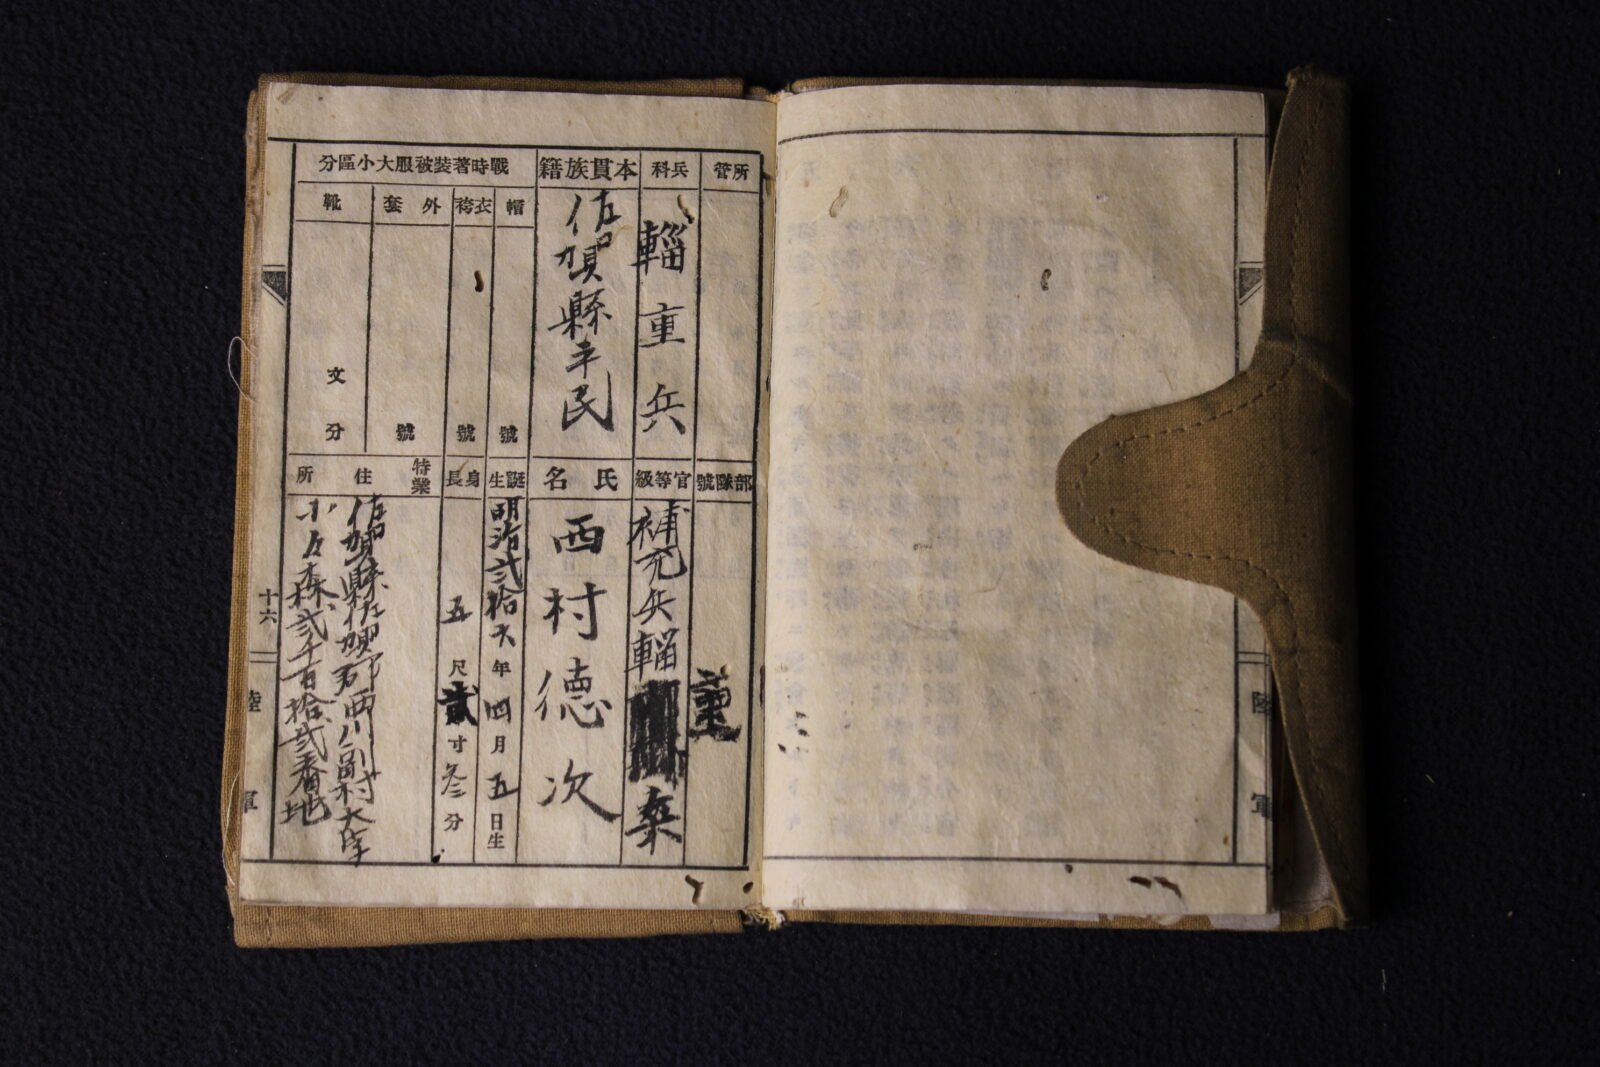 所管
兵科
輜重兵
本貫族籍
佐賀縣平民
戰時著裝被服大小區分
帽
號
衣袴
號
外套
號
靴
文
分
部隊號
官等級
補充兵輜
重
氏名
西村德次
誕生
明治貳拾六年四月五日生
身長
五尺貳寸叁分
特業
住所
佐賀縣佐賀郡西川副村大字
小々森貳千百拾貳番地
十六
陸軍
陸軍